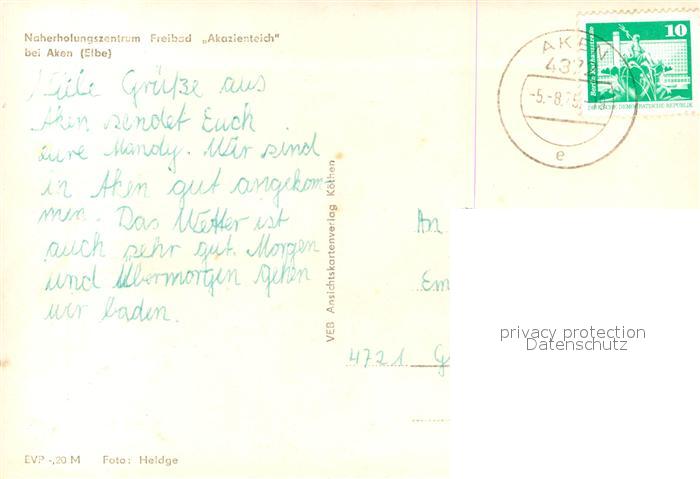 Naherholungszentrum Freibad „Akazienteich"
bei Aken (Elbe)
Viele Grüße aus
Aken sendet Euch
eure Mandy. Wir sind
in Aken gut angekom-
men. Das Wetter ist
auch sehr gut. Morgen
und Übermorgen gehen
wir baden.
EVP -,20 M Foto: Heldge
VEB Ansichtskartenverlag Köthen
AKEN
437
-5.-8.
e
10
Berlin Rathausstraße
DEUTSCHE DEMOKRATISCHE REPUBLIK
An
Em
4721 G
privacy protection
Datenschutz